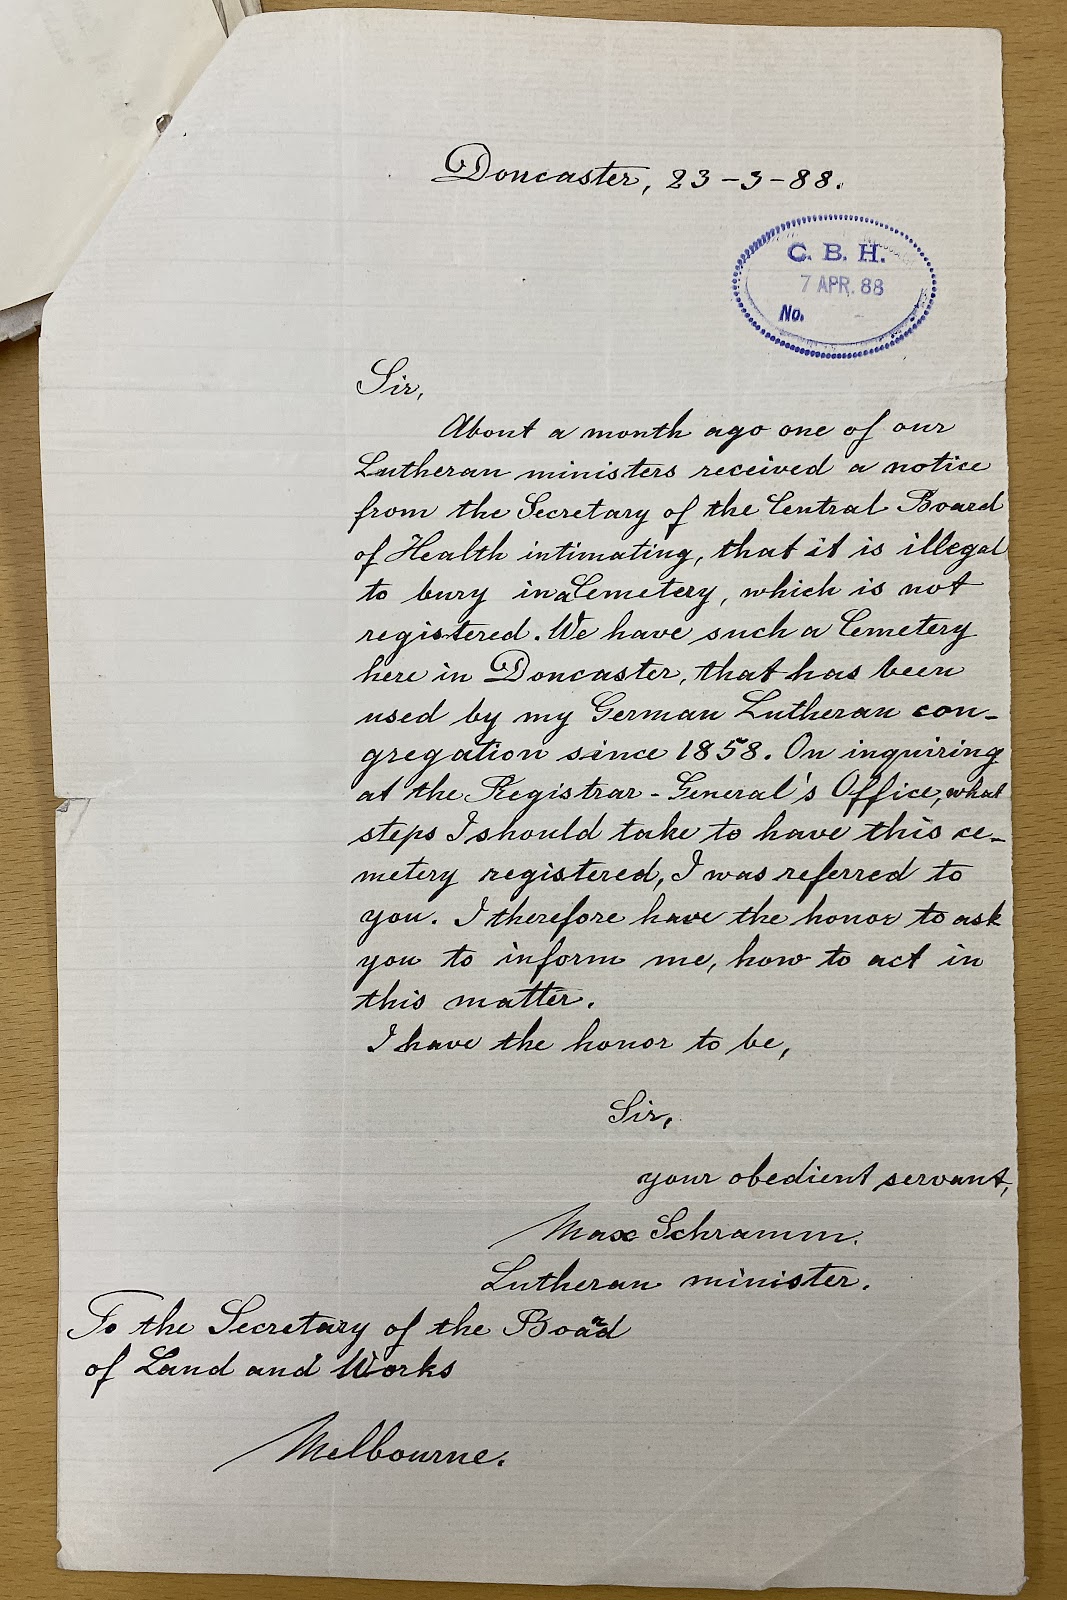 Doncaster, 23-3-88.
C. B. H.
7 APR. 88
No.
Sir,
About a month ago one of our
Lutheran ministers received a notice
from the Secretary of the Central Board
of Health intimating, that it is illegal
to bury in a Cemetery, which is not
registered. We have such a Cemetery
here in Doncaster, that has been
used by my German Lutheran con-
gregation since 1858. On inquiring
at the Registrar-General's Office, what
steps I should take to have this ce-
metery registered, I was referred to
you. I therefore have the honor to ask
you to inform me, how to act in
this matter.
I have the honor to be,
Sir,
your obedient servant,
Max Schramm.
Lutheran minister.
To the Secretary of the Board
of Land and Works
Melbourne.